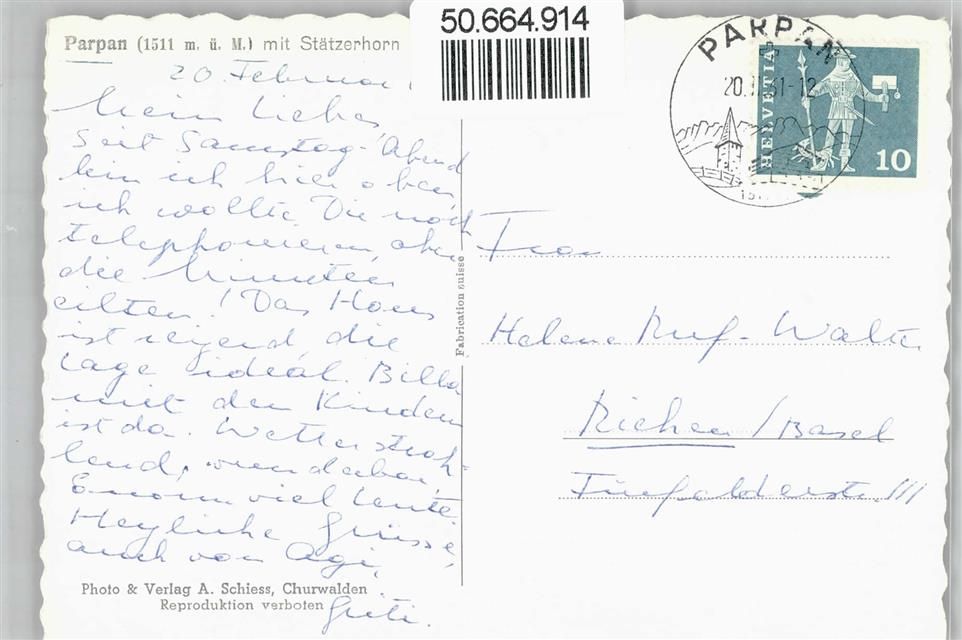 50.664.914
Parpan (1511 m. ü. M.) mit Stätzerhorn
20. Februar
Mein Liebes,
Seit Samstag-Abend
bin ich hier oben,
ich wollte Dir noch
telephonieren, aber
die Minuten
eilten! Das Haus
ist reizend, die
Lage ideal. Billa
mit den Kindern
ist da. Wetter strah-
lend, wunderbar,
Enorm viel Leute.
Herzliche Grüsse,
auch von Agi,
Photo & Verlag A. Schiess, Churwalden
Reproduktion verboten
Fabrication suisse
PARPAN
20. 61-12
HELVETIA
10
Frau
Helene Ruf-Walter
Riehen / Basel
111